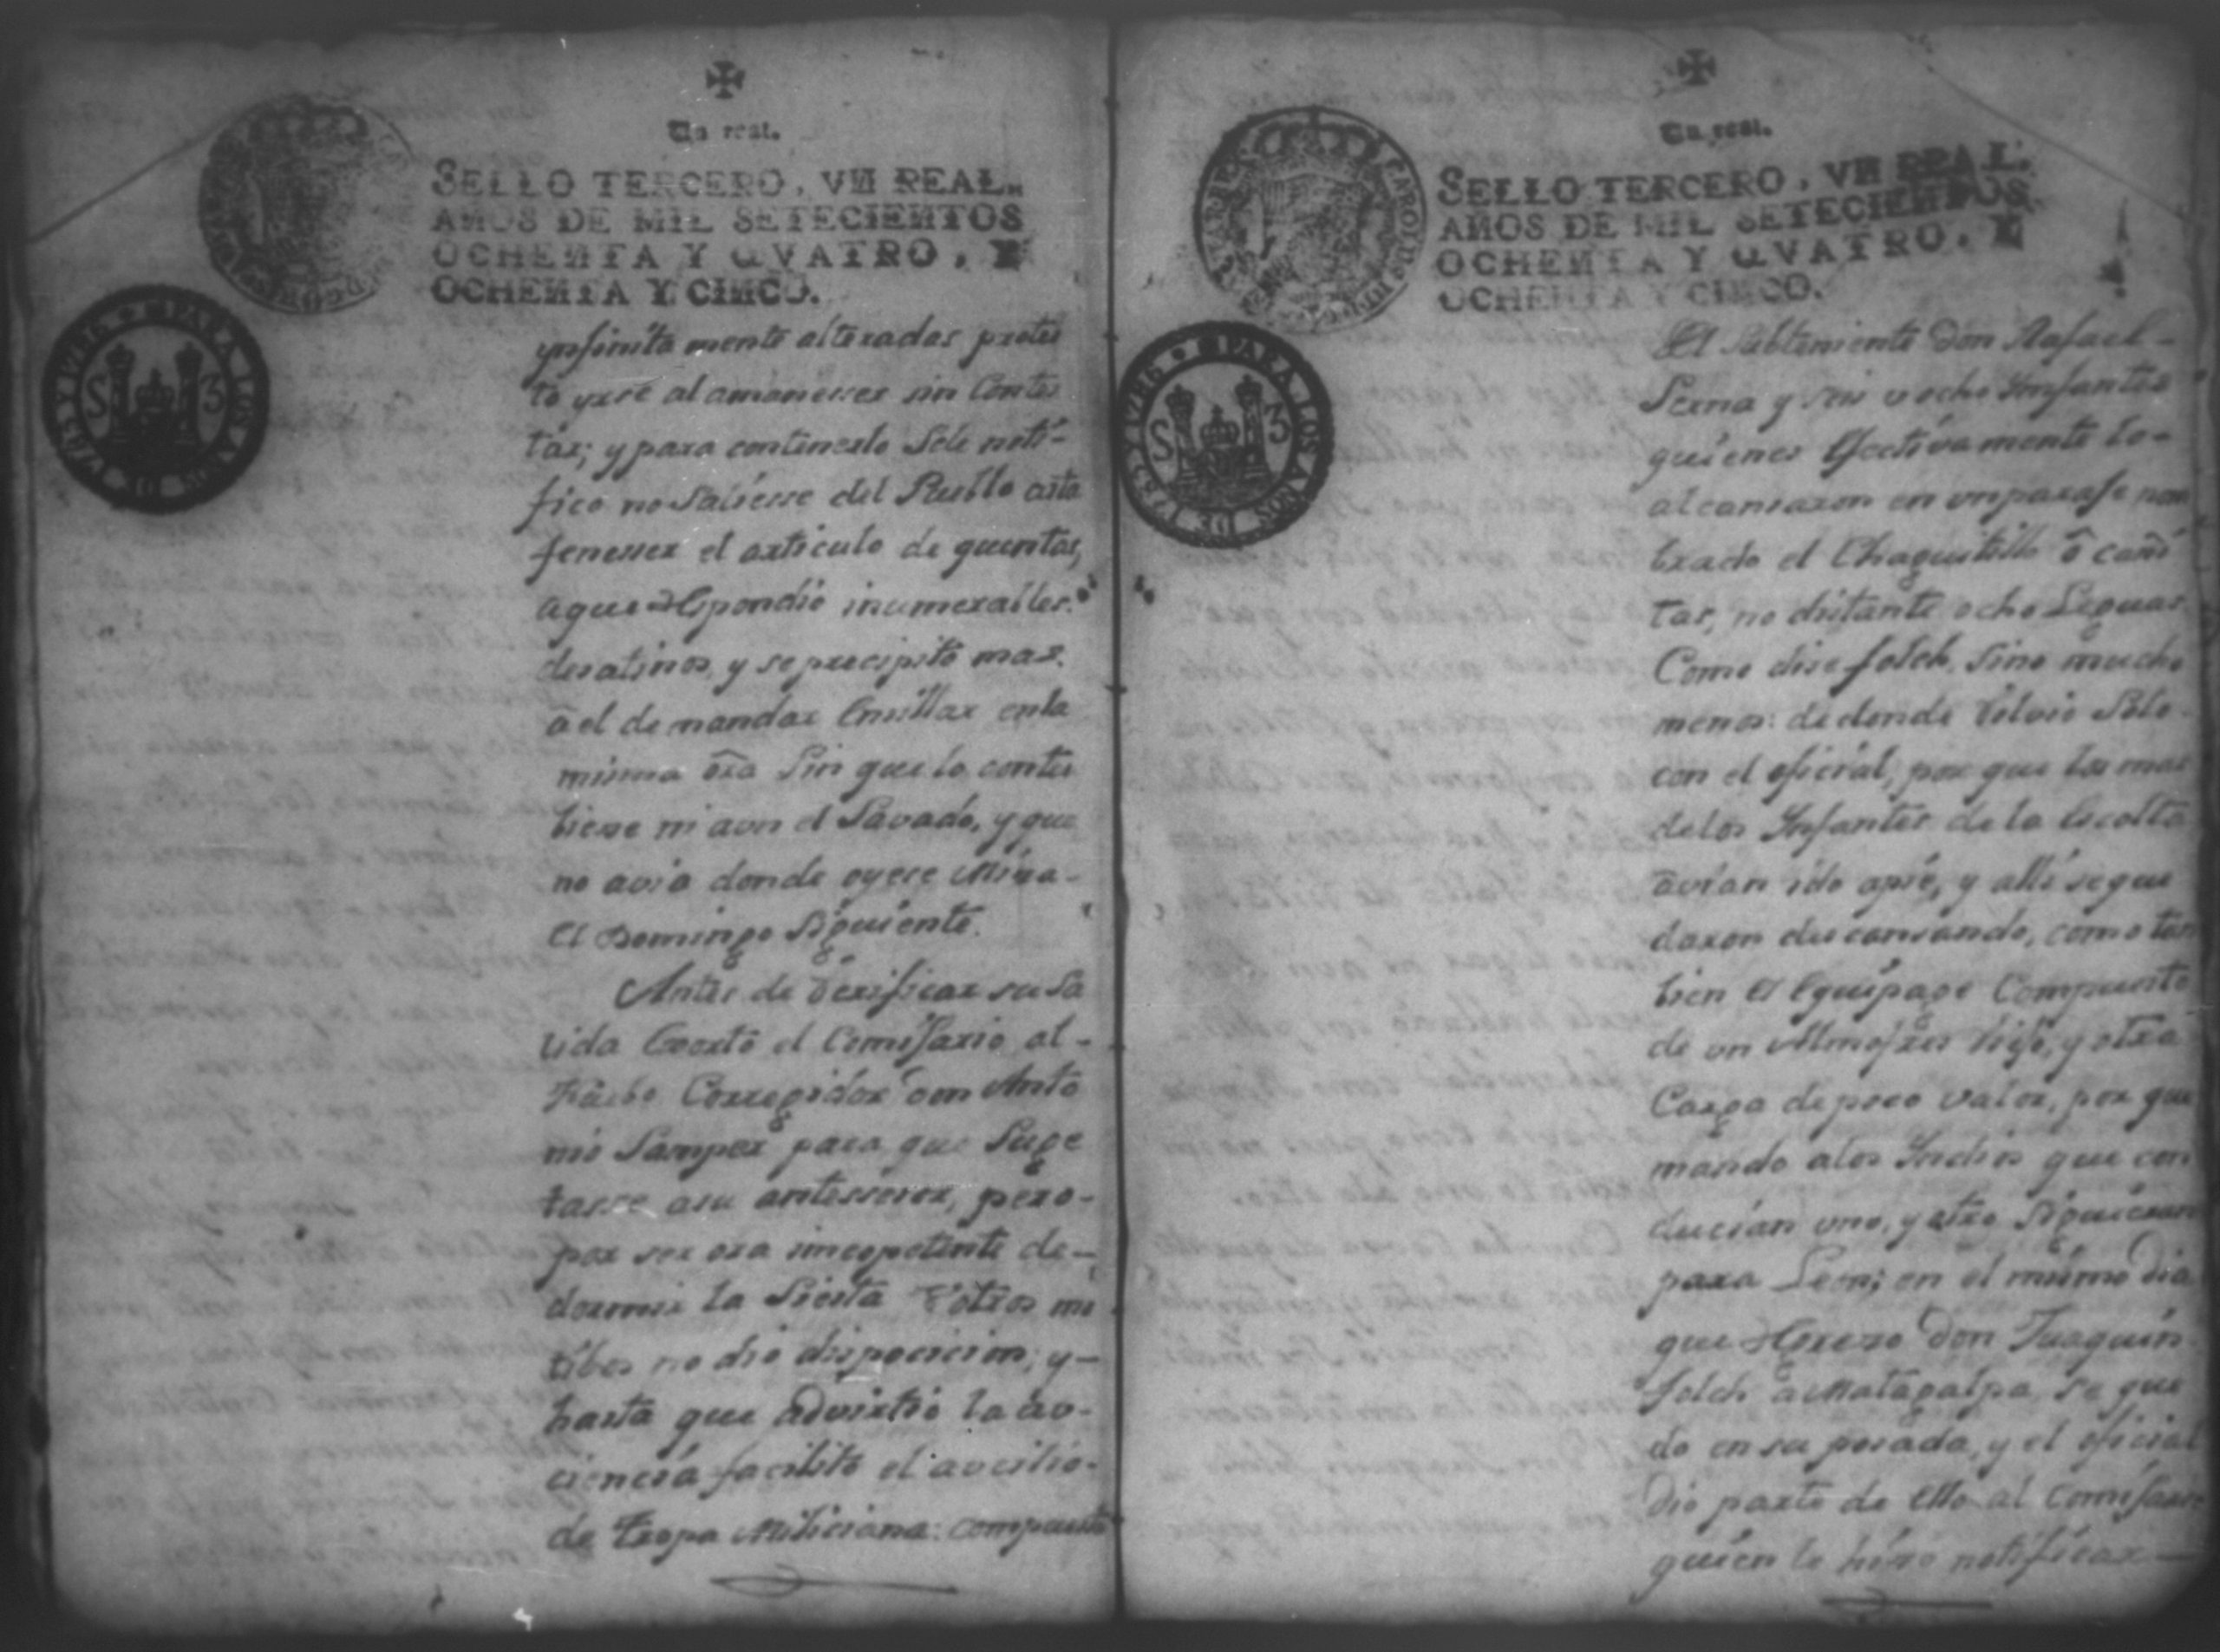 Un real.
SELLO TERCERO, VN REAL,
AÑOS DE MIL SETECIENTOS
OCHENTA Y QVATRO, Y
OCHENTA Y CINCO.
PARA LOS AÑOS DE 1785 Y 1786
S 3
ynfinita mente alteradas protes
to yrse al amanesser sin Contes
tar; y para contenerlo Sele noti-
fico no Saliesse del Pueblo asta
fenesser el articulo de quentas,
aque respondio inumerables
desatinos, y se precipitó mas
â el de mandar Ensillar enla
misma ora Sin que lo contu
biese ni aun el Savado, y que
no avia donde oyese Missa
El Domingo Siguiente.
Antes de verificar su sa
lida Exortó el Comissario al-
Corregidor Don Anto
nio Samper para que Suge
tasse asu antessesor, pero-
por ser ora de-
dormir la Siesta y otros mo
tibos no dio disposicion; y-
hasta que advirtio la au-
ciencia facilitó el aucilio-
de tropa Miliciana: compuesta
Un real.
SELLO TERCERO, VN REAL.
AÑOS DE MIL SETECIENTOS
OCHENTA Y QVATRO, Y
OCHENTA Y CINCO.
PARA LOS AÑOS DE 1785 Y 1786
S 3
El Subteniente Don Rafael-
Serna y seis u ocho Ynfantes
quienes Efectiva mente lo-
alcansaron en un parage nom
brado el Chaguitillo ô
tas, no distante ocho Leguas
Como dise folch, Sino mucho
menos: de donde volvio Solo
con el oficial, por que los mas
delos Ynfantes de la Escolta
avian ido apie, y alli se que
daron descansando, como tan
bien El Equipage Compuesto
de un Almofrez viejo, y otra
Carga de poco valor, por que
mandó alos Yndios que con
ducian uno, y otro Siguieran
para Leon; en el mismo dia
que regreso Don Juaquin
folch â Matagalpa, se que
do en su posada, y el oficial
dio parte de Ello al Comissario
quien le hiso notificar-